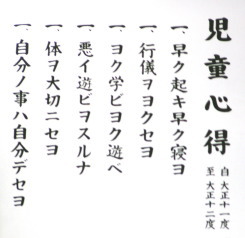 児童心得
自大正十一年度
至大正十二年度
一、早ク起キ早ク寝ヨ
一、行儀ヲヨクセヨ
一、ヨク学ビヨク遊ベ
一、悪イ遊ビヲスルナ
一、体ヲ大切ニセヨ
一、自分ノ事ハ自分デセヨ